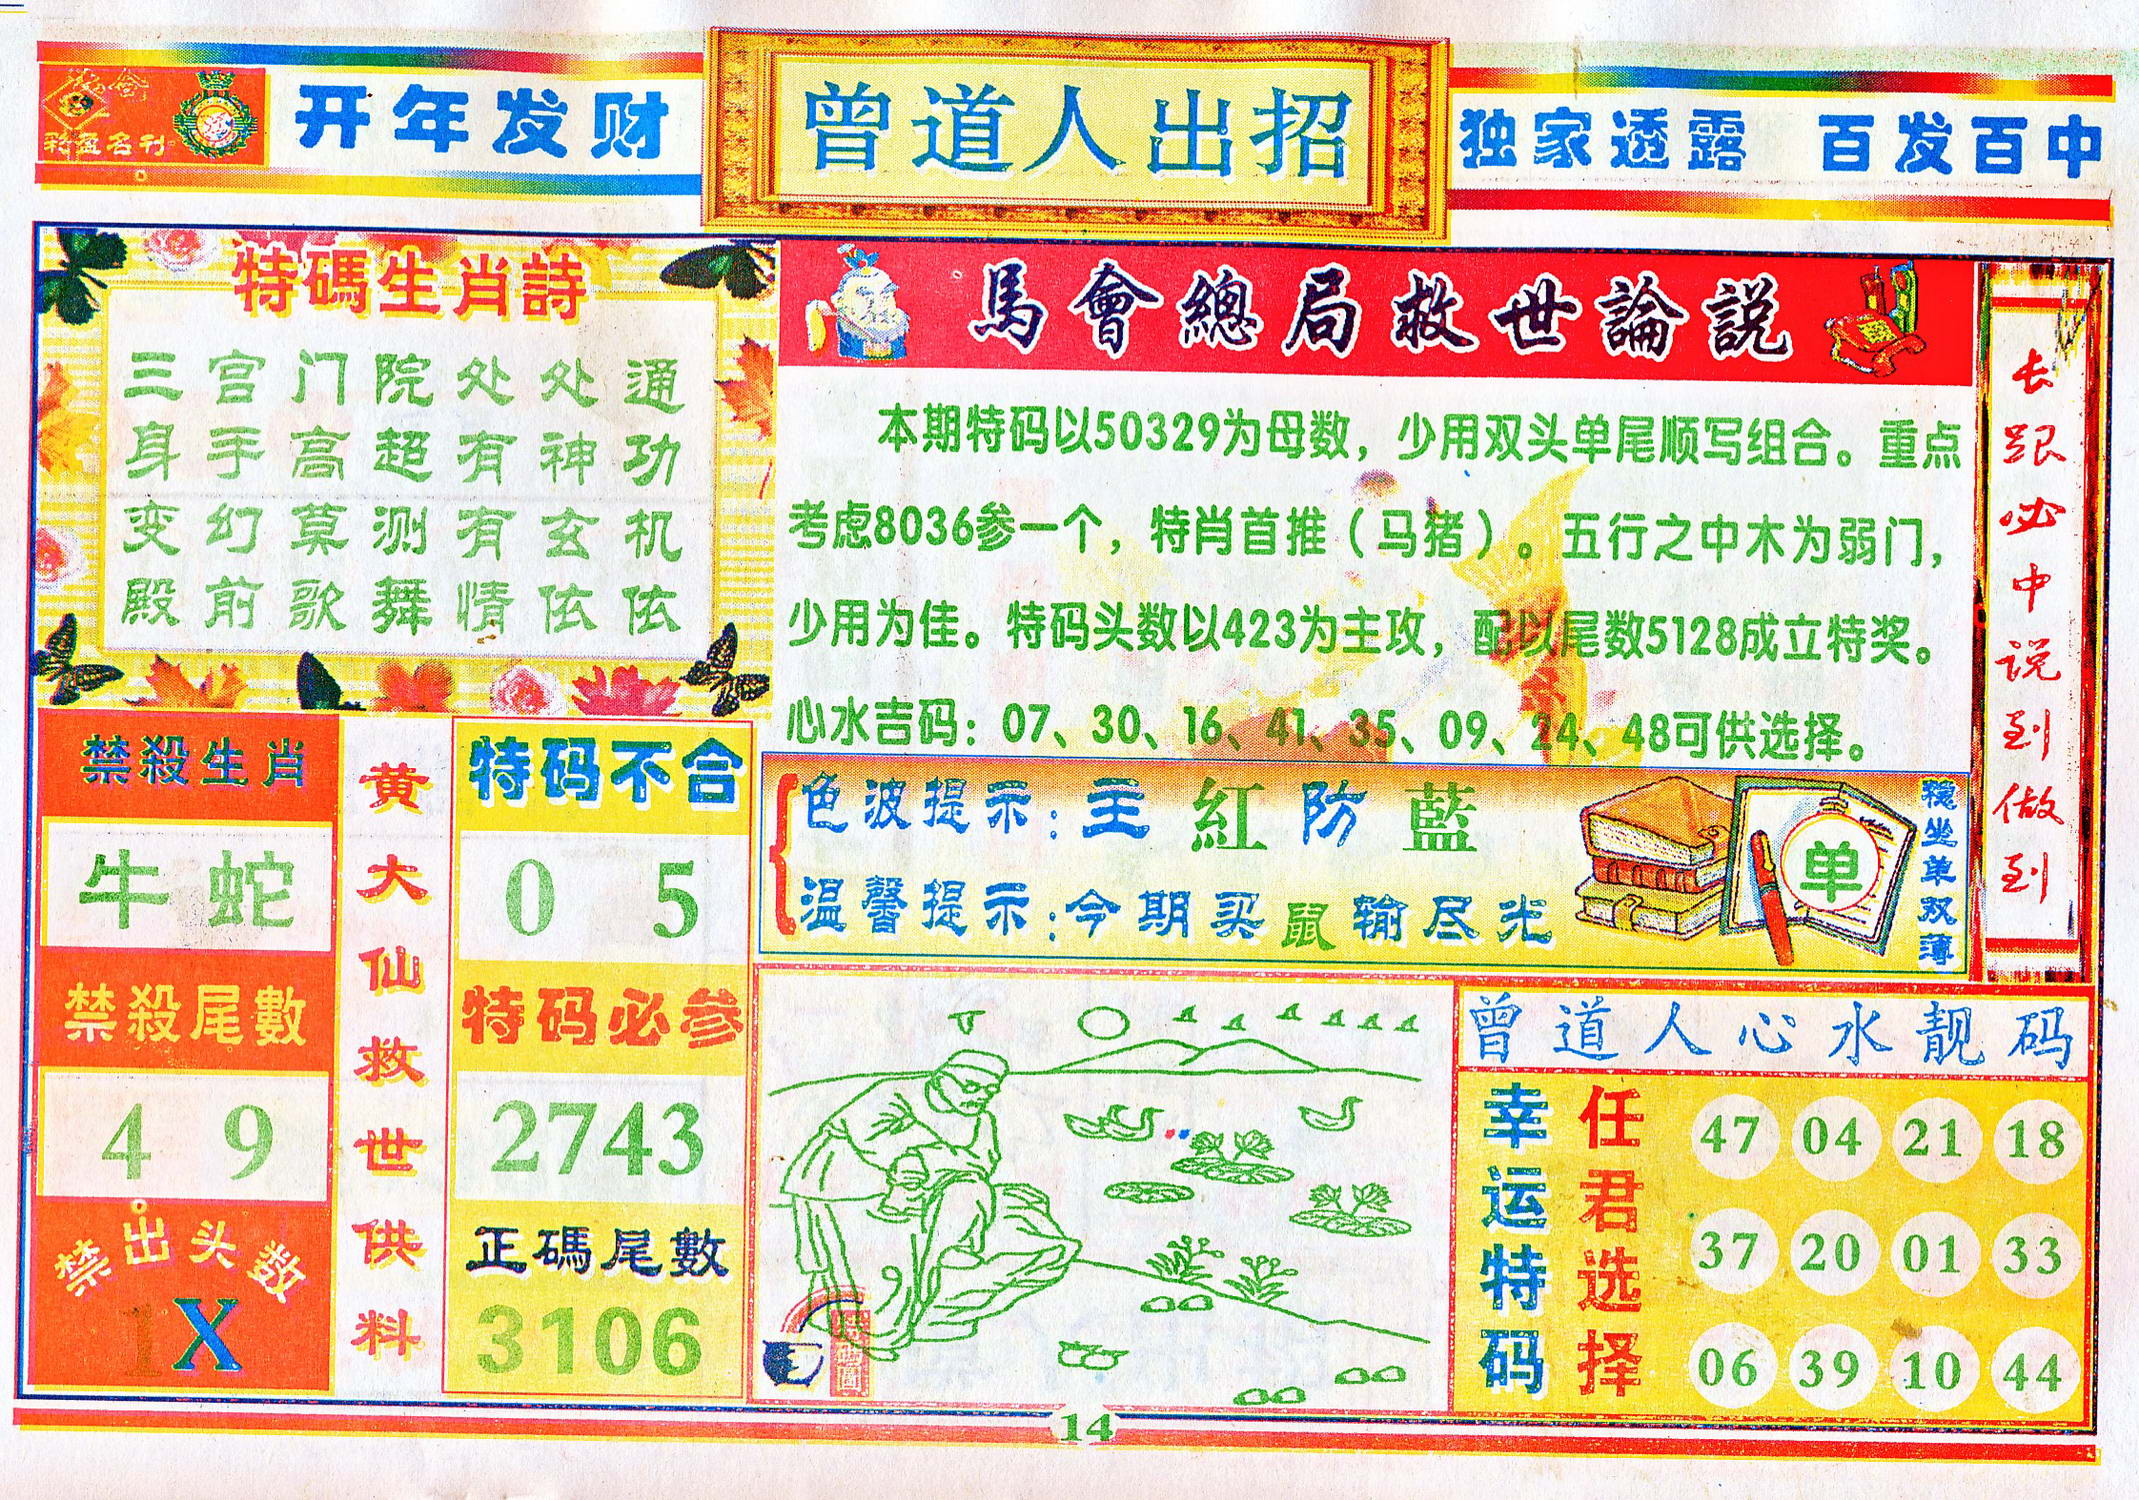 彩盈名刊
开年发财
曾道人出招
独家透露 百发百中
特碼生肖詩
三宫门院处处通
身手高超有神功
变幻莫测有玄机
殿前歌舞情依依
馬會總局救世論説
本期特码以50329为母数，少用双头单尾顺写组合。重点
考虑8036参一个，特肖首推（马猪）。五行之中木为弱门，
少用为佳。特码头数以423为主攻，配以尾数5128成立特奖。
心水吉码：07、30、16、41、35、09、24、48可供选择。
长跟必中说到做到
色波提示：主紅防藍
温馨提示：今期买鼠输尽光
单
稳坐单双薄
禁殺生肖
牛 蛇
禁殺尾數
4 9
禁出头数
1X
黄大仙救世供料
特码不合
0 5
特码必参
2743
正碼尾數
3106
曾道人心水靓码
幸运特码
任君选择
47 04 21 18
37 20 01 33
06 39 10 44
14